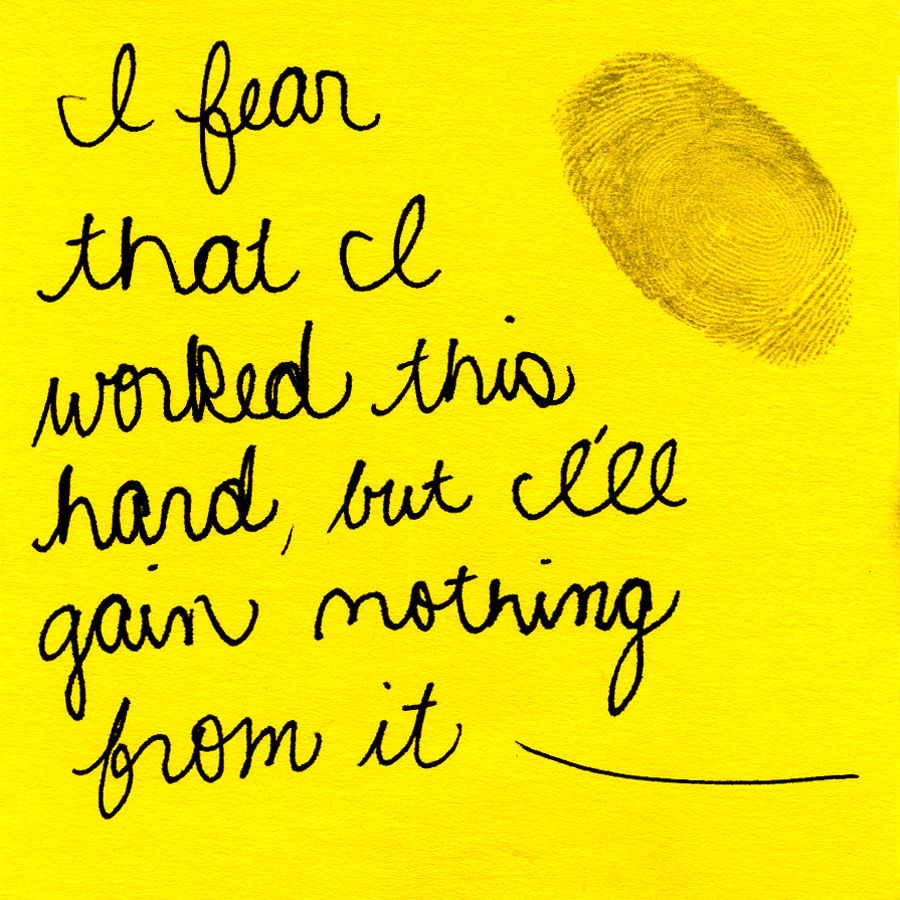 I fear
that I
worked this
hard, but I'll
gain nothing
from it